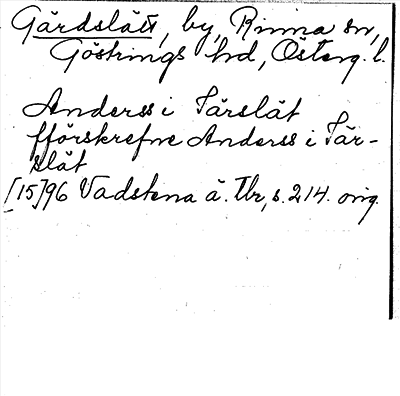 Gärdslätt, by, Rinna sn,
Göstrings hd, Österg. l.
Anderss i Tärslät
fförskrefne Anderss i Tär-
slät
[15]96 Vadstena ä. Tbr, s. 214. orig.